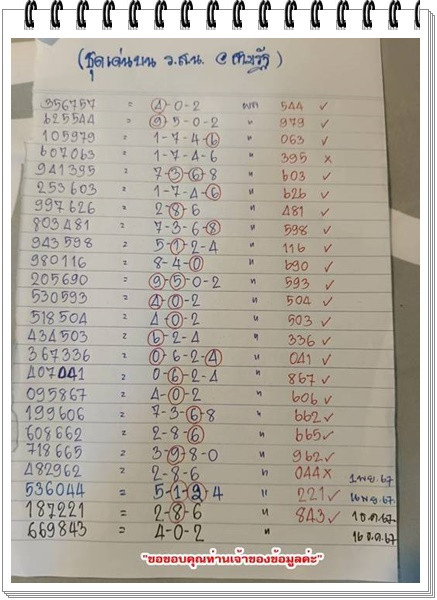 (ชุดเด่นบน ว.ส.น. @สามรัฐ)
356757 = 4-0-2 ผล 544 ✓
625544 = 9-5-0-2 " 979 ✓
105979 = 1-7-4-6 " 063 ✓
607063 = 1-7-4-6 " 395 ×
941395 = 7-3-6-8 " 603 ✓
253603 = 1-7-4-6 " 626 ✓
997626 = 2-8-6 " 481 ✓
803481 = 7-3-6-8 " 598 ✓
943598 = 5-1-2-4 " 116 ✓
980116 = 8-4-0 " 690 ✓
205690 = 9-5-0-2 " 593 ✓
530593 = 4-0-2 " 504 ✓
518504 = 4-0-2 " 503 ✓
434503 = 6-2-4 " 336 ✓
367336 = 0-6-2-4 " 041 ✓
407041 = 0-6-2-4 " 867 ✓
095867 = 4-0-2 " 606 ✓
199606 = 7-3-6-8 " 662 ✓
608662 = 2-8-6 " 665 ✓
718665 = 3-9-8-0 " 962 ✓
482962 = 2-8-6 " 044 × 1 พย. 67
536044 = 5-1-2-4 " 221 ✓ 16 พย. 67
187221 = 2-8-6 " 843 ✓ 1 ธ.ค. 67
669843 = 4-0-2 " 16 ธ.ค. 67
"ขอขอบคุณท่านเจ้าของข้อมูลค่ะ"